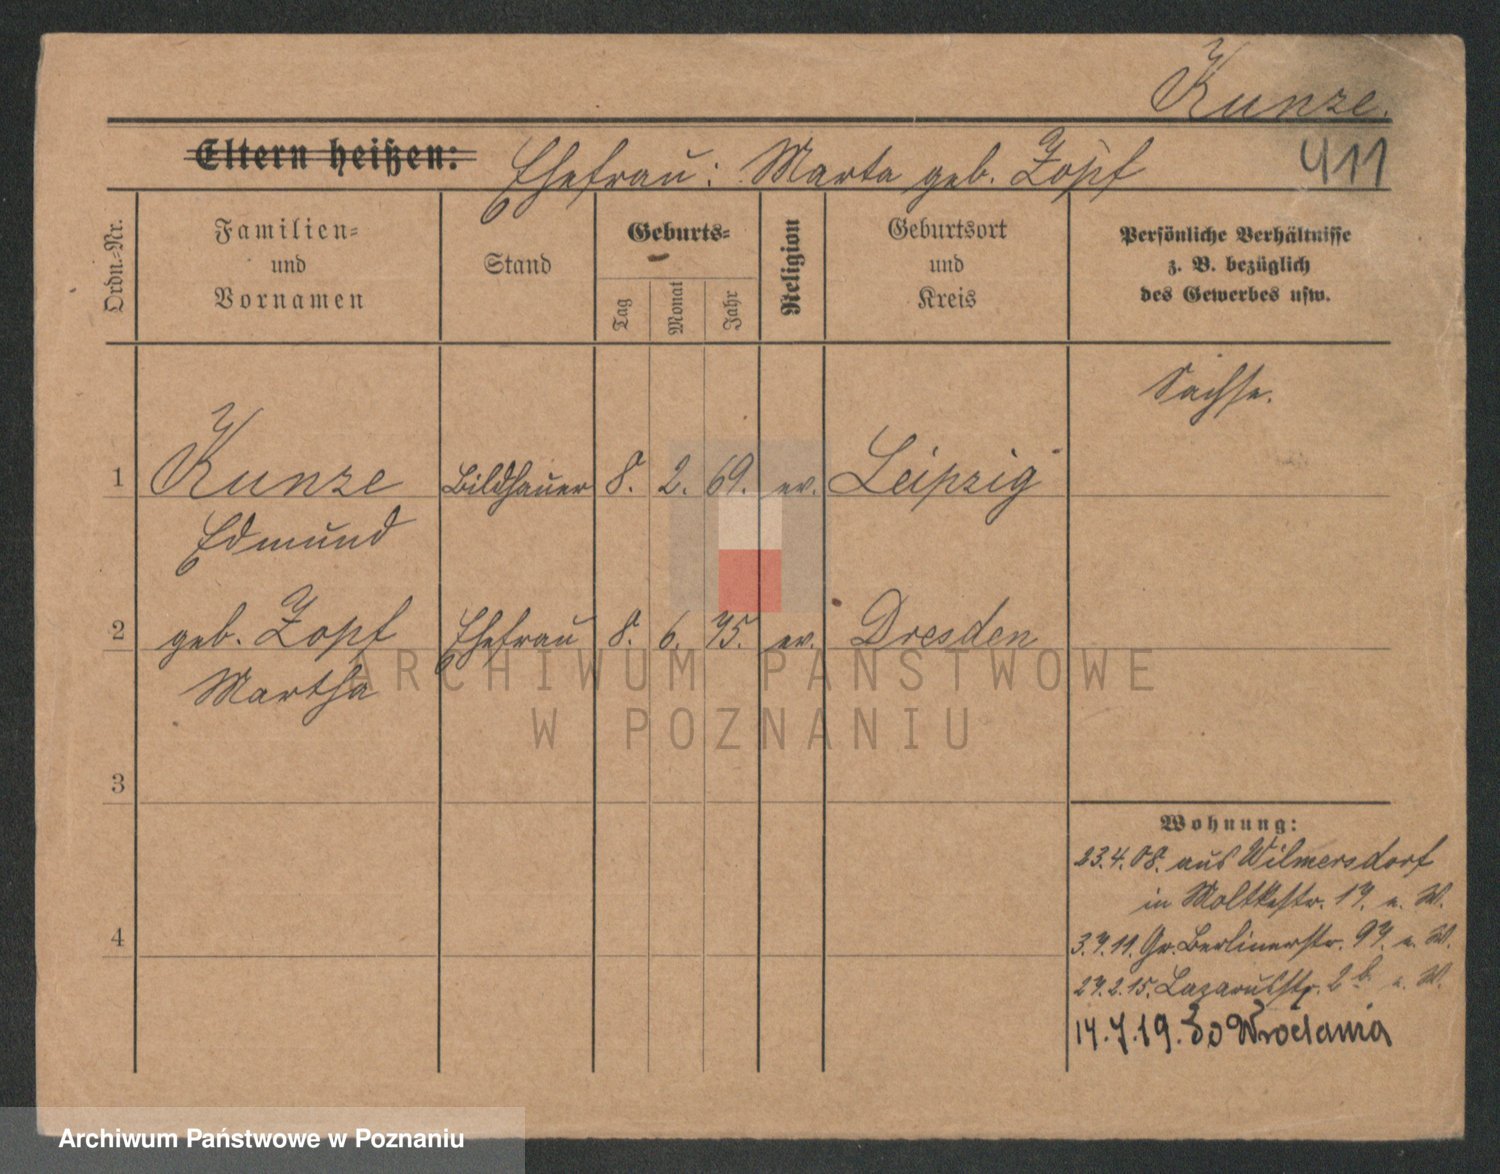 Kunze.
411
Eltern heißen: Ehefrau: Marta geb. Zopf
Ordn.-Nr.
Familien-
und
Vornamen
Stand
Geburts-
Tag
Monat
Jahr
Religion
Geburtsort
und
Kreis
Persönliche Verhältnisse
z. B. bezüglich
des Gewerbes usw.
Sachse.
1 Kunze Bildhauer 8. 2. 69. ev. Leipzig
Edmund
2 geb. Zopf Ehefrau 8. 6. 75. ev. Dresden
Martha
ARCHIWUM PAŃSTWOWE
W POZNANIU
3
4
Wohnung:
23.4.08. aus Wilmersdorf
in Moltkestr. 17. e. W.
3.7.11. Gr. Berlinerstr. 97. e. W.
27.2.15. Lazarusstr. 2b e. W.
14.7.19. Do Wrocławia
Archiwum Państwowe w Poznaniu